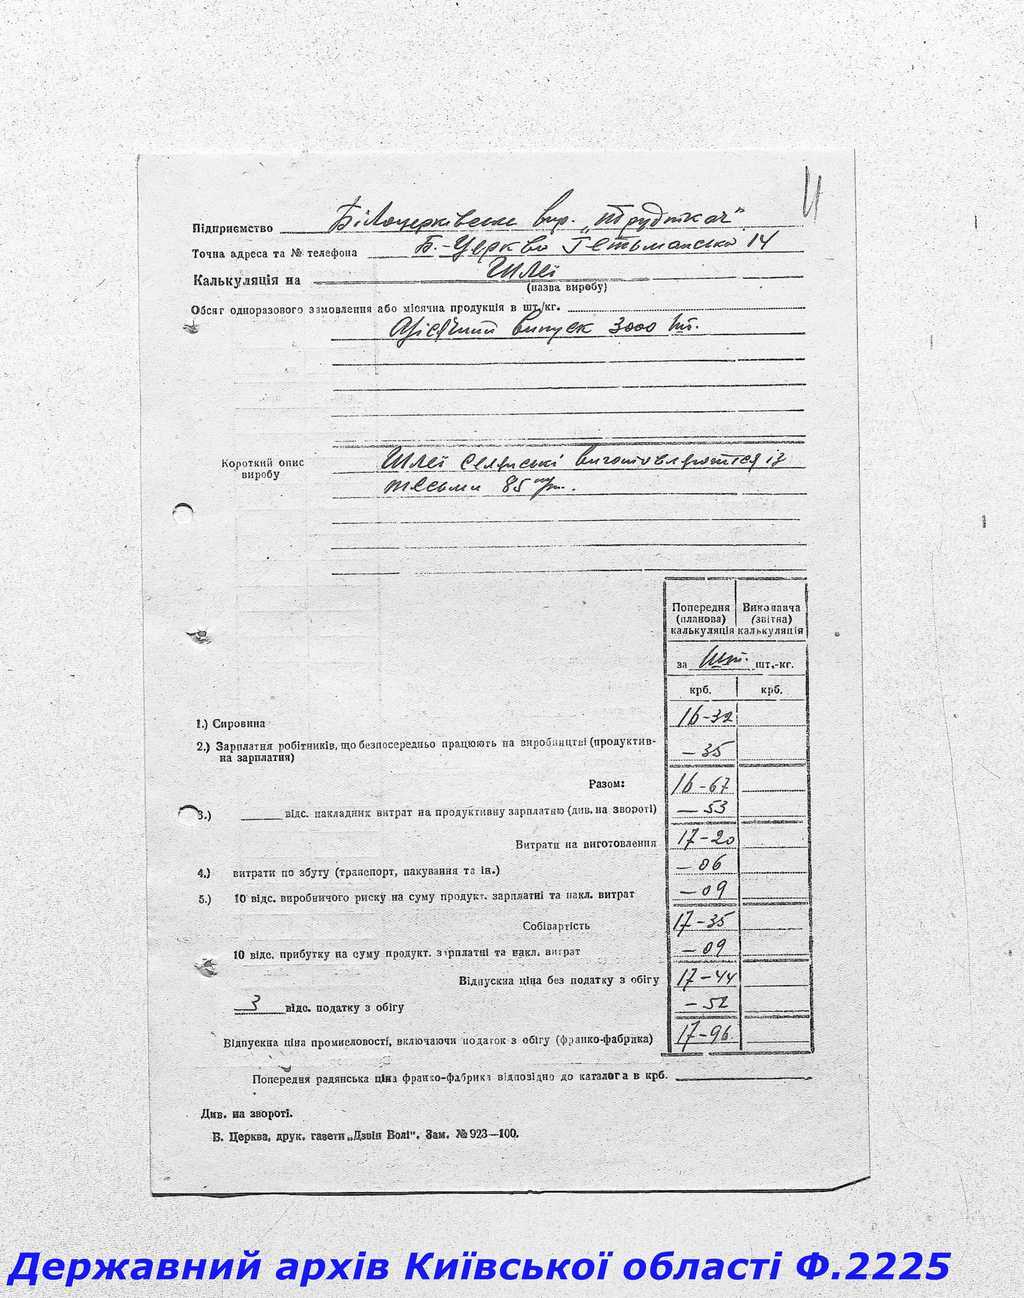 11
Підприємство Білоцерківськ вир. „Трудткач"
Точна адреса та № телефона Б.-Церква Гетьманська 14
Калькуляція на Шлеї
(назва виробу)
Обсяг одноразового замовлення або місячна продукція в шт./кг.
Місячний випуск 3000 шт.
Короткий опис виробу
Шлеї селянські виготовляються із
тесьми 85
Попередня (планова) калькуляція
Виконавча (звітна) калькуляція
за шт. шт.-кг.
крб. крб.
1.) Сировина 16-32
2.) Зарплатня робітників, що безпосередньо працюють на виробництві (продуктив-
на зарплатня) -35
Разом: 16-67
3.) відс. накладних витрат на продуктивну зарплатню (див. на звороті) -53
Витрати на виготовлення 17-20
4.) витрати по збуту (транспорт, пакування та ін.) -06
5.) 10 відс. виробничого риску на суму продукт. зарплатні та накл. витрат -09
Собівартість 17-35
10 відс. прибутку на суму продукт. зарплатні та накл. витрат -09
Відпускна ціна без податку з обігу 17-44
3 відс. податку з обігу -52
Відпускна ціна промисловості, включаючи податок з обігу (франко-фабрика) 17-96
Попередня радянська ціна франко-фабрика відповідно до каталога в крб.
Див. на звороті.
Б. Церква, друк. газети „Дзвін Волі". Зам. № 923—100.
Державний архів Київської області Ф.2225